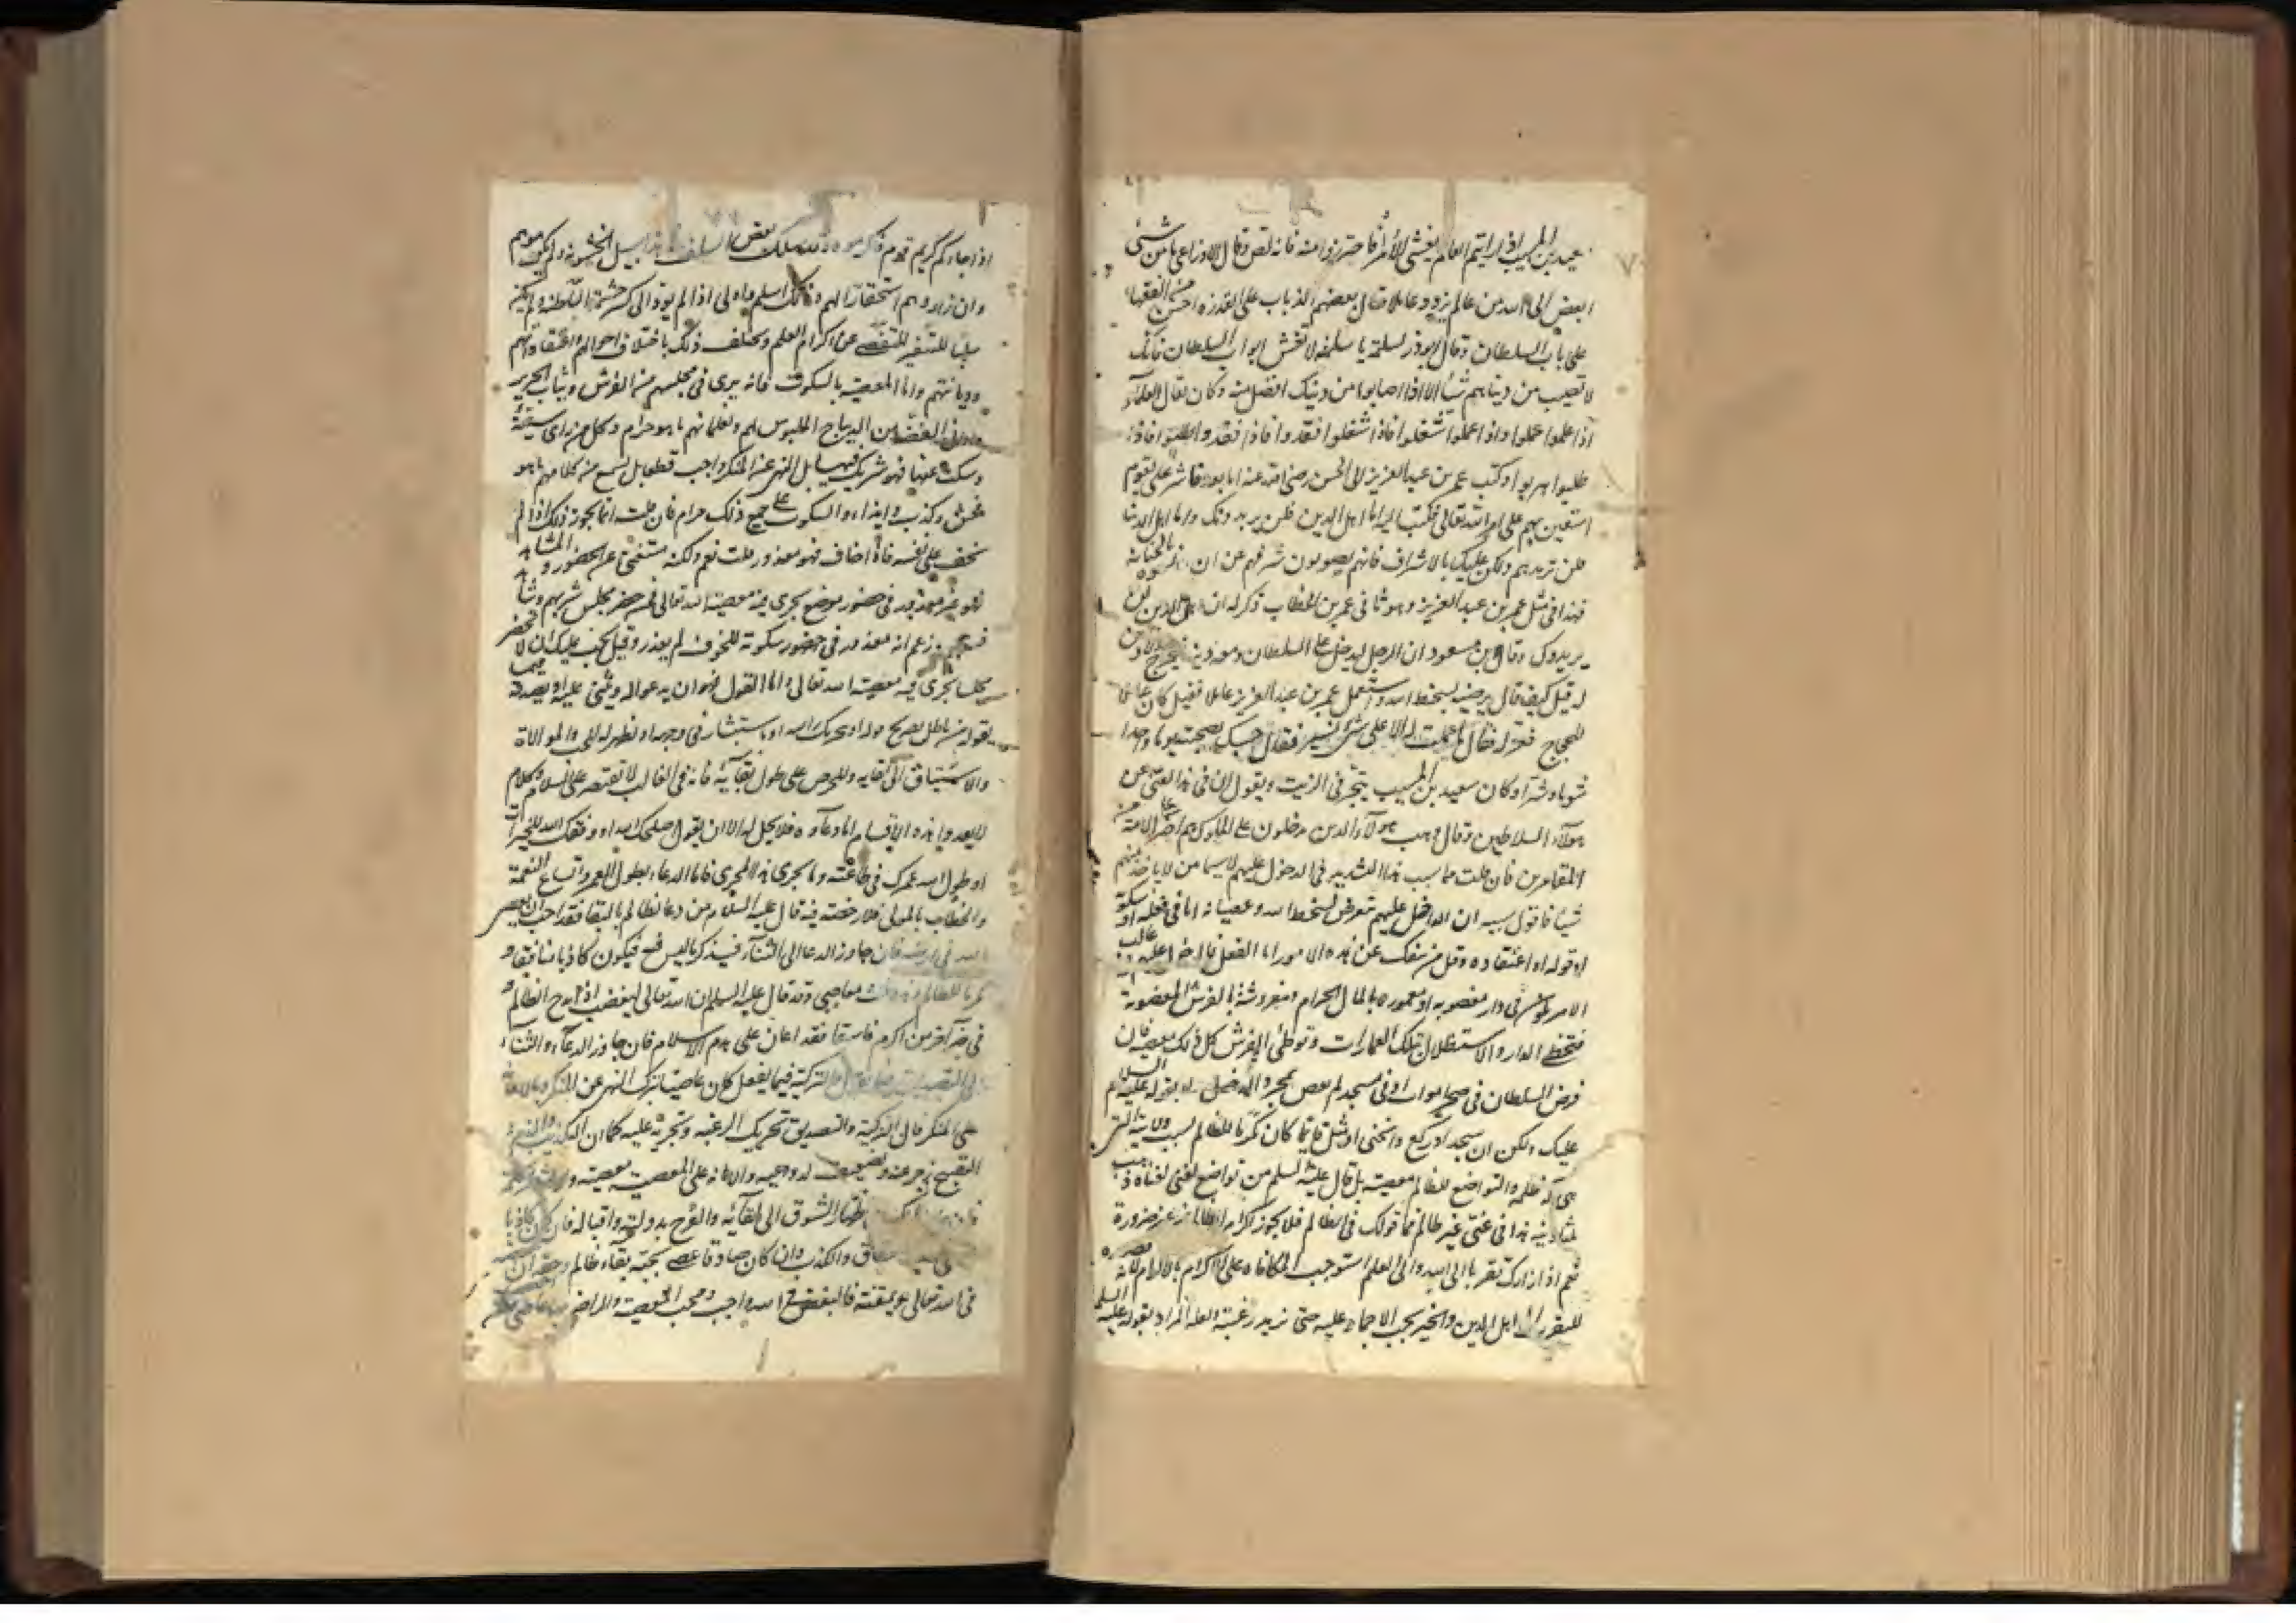 سعيد بن المسيب اذا رايتم العالم يغشى الأمرآ فاحترزوا منه فانه لص وقال الاوزاعي ما من شئ
ابغض الى الله من عالم يزور عاملا وقال بعضهم الذباب على القذره احسن من الفقها
على باب السلطان وقال ابوذر لسلمة يا سلمه لا تغش ابواب السلطان فانك
لا تصيب من دنياهم شيأ الا اذا اصابوا من دينك افضل منه وكان يقال العلمآء
اذا علموا عملوا واذا عملوا شغلوا فاذا شغلوا فقدوا فاذا فقدوا طلبوا فاذا
طلبوا هربوا وكتب عمر بن عبد العزيز الى الحسن رضى الله عنه اما بعد فاشر على بقوم
استعين بهم على امر الله تعالى فكتب اليه اما اهل الدين فلن يريدونك واما اهل الدنيا
فلن تريدهم ولكن عليك بالاشراف فانهم يصونون شرفهم عن ان بالخيانة
فهذا فى مثل عمر بن عبد العزيز وهو ثانى عمر بن الخطاب ذكر له ان اهل الدين لن
يريدوك وقال بن مسعود ان الرجل ليدخل على السلطان ومعه دينه فيخرج ولا دين
له قيل كيف قال يرضيه بسخط الله واستعمل عمر بن عبد العزيز عاملا فقيل كان عاملا
للحجاج فعزله فقال ما عملت له الا على شئ يسير فقال حسبك بصحبته يوما واحدا
شوما وشرا وكان سعيد بن المسيب يتجر فى الزيت ويقول ان فى هذا لغنى عن
هولآء السلاطين وقال وهب هولآء الذين يدخلون على الملوك هم اضر على الامة من
المقامرين فان قلت ما سبب هذا التشديد فى الدخول عليهم لا سيما من لا ياخذ منهم
شيئا فاقول سببه ان الداخل عليهم تعرض لسخط الله وعصيانه اما فى فعله او سكوته
او قوله او اعتقاده وقل من ينفك عن هذه الامور اما الفعل فالدخول عليهم غالب
الامر فى دار مغصوبه او معموره بالمال الحرام ومفروشة بالفرش المغصوبة
فتخطى الدار والاستظلال بتلك العمارات وتوطئ الفرش كل ذلك معصيه فان
فرض السلطان فى صحرا موات او فى مسجد لم يعص بمجرد الدخول ولا بقوله السلام
عليك ولكن ان سجد او ركع وانحنى او مثل قايما كان مكرما للظالم بسبب ولايته التى
هى آلة ظلمه والتواضع للظالم معصيته بل قال عليه السلم من تواضع لغنى لغناه ذهب
ثلثا دينه هذا فى غنى غير ظالم فما قولك فى الظالم فلا يجوز اكرام الظالم من غير ضرورة
نعم اذا زارك تقربا الى الله والى العلم استوجب المكافاه على الاكرام بالاكرام لانه
اهل الدين والخير يجب عليه حتى تزيد رغبته ولعله المراد بقوله عليه السلم
اذا جاءكم كريم قوم فاكرموه وقد سلك بعض السلف هذا سبيل الخشونة ولم يكرموهم
وان زاروهم استحقارا لهم وذلك اسلم واولى اذا لم يود الى كسر حشمة السلطنة ولم يكن
سببا للتنفير عن اكرام العلم ويختلف ذلك باختلاف احوالهم واعتقاداتهم
وديانتهم واما المعصية بالسكوت فانه يرى فى مجلسهم من الفرش وثياب الحرير
من الديباج الملبوس لهم ولغلمانهم ما هو حرام وكل من راى سيئة
وسكت عنها فهو شريك فيها بل النهى عن المنكر واجب قطعا بل يسمع من كلامهم ما هو
فحش وكذب وايذاء والسكوت على جميع ذلك حرام فان قلت انما يجوز ذلك اذا لم
يخف على نفسه فاذا خاف فهو معذور قلت نعم ولكنه مستغنى عن الحضور والمشاهده
فهو غير معذور فى حضور موضع يجرى فيه معصية الله تعالى فمن حضر مجلس شربهم
زعم انه معذور فى حضور سكوته للخوف لم يعذر وقيل يجب عليك ان لا تحضر
مجلسا يجرى فيه معصيت الله تعالى واما القول فهو ان يدعو له ويثنى عليه او يصدقه
بقوله من باطل بصريح قوله او بتحريك راسه او باستبشار فى وجهه او تظهر له الحب والموالاة
والاشتياق الى لقايه والحرص على طول بقآئه فانه فى الغالب لا تقتصر على السلام وكلام
لا يعدو هذه الاقسام اما دعآوه فلا يحل له الا ان يقول اصلحك الله او وفقك الله للخيرات
او طول الله عمرك فى طاعته وما يجرى هذا المجرى فاما الدعاء بطول العمر واتساع النعمة
والخطاب بالمولى فلا رخصة فيه قال عليه السلام من دعا لظالم بالبقا فقد احب ان يعصى
الله فى ارضه فان جاوز الدعا الى الثنآء فيذكر ما ليس فيه فيكون كاذبا منافقا و
مكرما للظالم معاصى وقد قال عليه السلم ان الله تعالى ليغضب اذا مدح الظالم و
فى خبر آخر من اكرم فاسقا فقد اعان على هدم الاسلام فان جاوز الدعآء والثناء
الى التصديق والتزكية فيما يفعل كان عاصيا بترك النهى عن المنكر
على المنكر فان التزكية والتصديق تحريك الرغبة وتجرية عليه كما ان التكذيب
التقبيح زجر عنه وتضعيف لدواعيه والاعانة على المعصية معصيته
اظهار الشوق الى لقآئه والفرح بدولته واقباله فان كان كاذبا
عصى النفاق والكذب وان كان صادقا عصى بمحبة بقاء ظالم وحقه ان
فى الله تعالى ويمقته فالبغض فى الله واجب ومحب المعصية والراضى بها عاصى